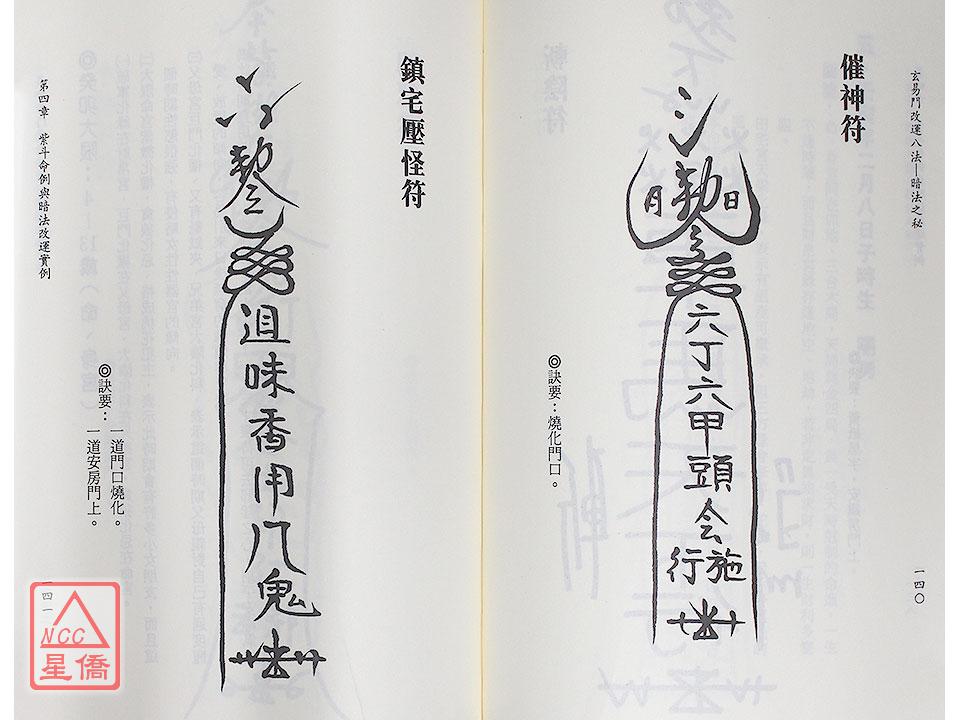 玄易門改運八法—暗法之秘
催神符
勅
日
月
六丁六甲頭会
施行
◎訣要：燒化門口。
一四〇
鎮宅壓怪符
勅令
味香用
鬼
◎訣要：一道門口燒化。
一道安房門上。
第四章　紫斗命例與暗法改運實例
一四一
NCC
星僑